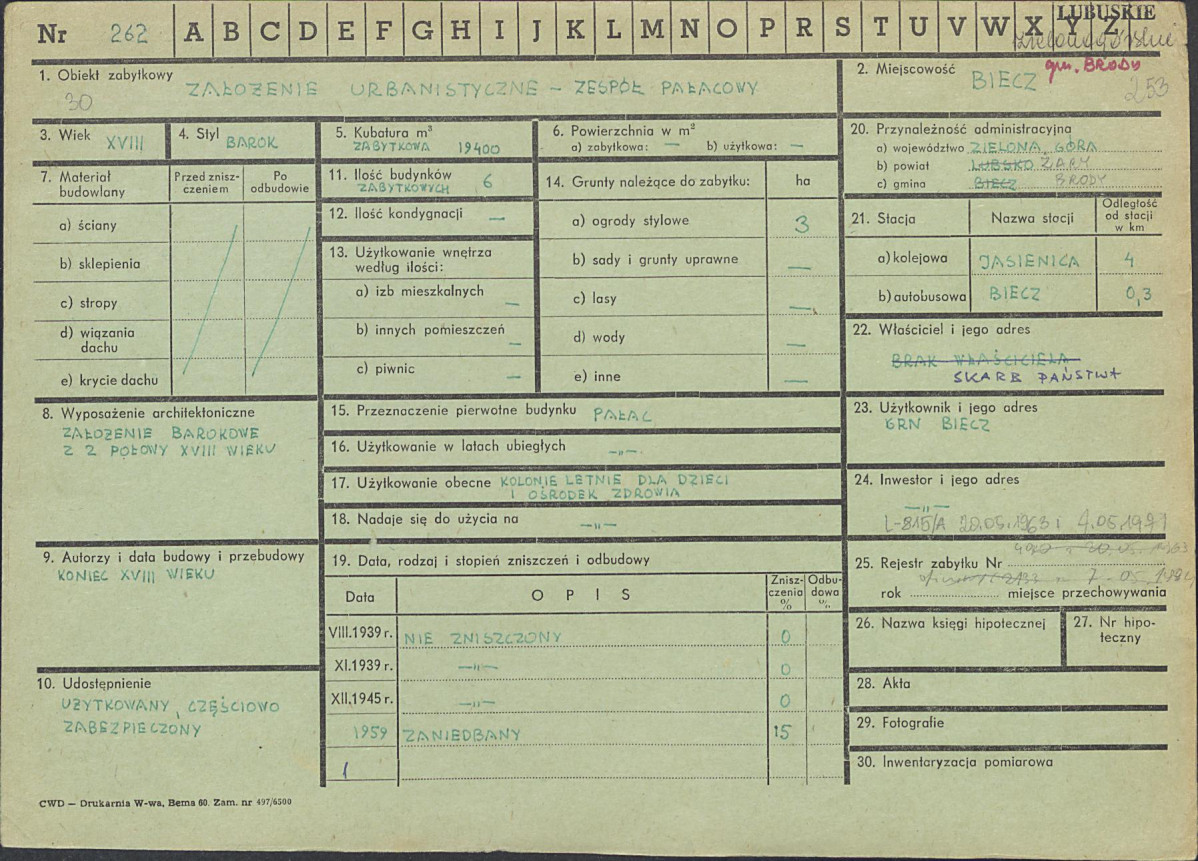 Nr 262 A B C D E F G H I J K L M N O P R S T U V W X Y Z LUBUSKIE
zielonogórskie
gm. BRODY
1. Obiekt zabytkowy
30
ZAŁOŻENIE URBANISTYCZNE – ZESPÓŁ PAŁACOWY
2. Miejscowość
BIECZ
253
3. Wiek XVIII
4. Styl BAROK
5. Kubatura m³
ZABYTKOWA 19400
6. Powierzchnia w m²
a) zabytkowa: — b) użytkowa: —
7. Materiał budowlany
Przed znisz-
czeniem
Po
odbudowie
a) ściany
b) sklepienia
c) stropy
d) wiązania
dachu
e) krycie dachu
8. Wyposażenie architektoniczne
ZAŁOŻENIE BAROKOWE
Z 2 POŁOWY XVIII WIEKU
9. Autorzy i data budowy i przebudowy
KONIEC XVIII WIEKU
10. Udostępnienie
UŻYTKOWANY, CZĘŚCIOWO
ZABEZPIECZONY
11. Ilość budynków
ZABYTKOWYCH 6
12. Ilość kondygnacji —
13. Użytkowanie wnętrza
według ilości:
a) izb mieszkalnych —
b) innych pomieszczeń —
c) piwnic —
14. Grunty należące do zabytku: ha
a) ogrody stylowe 3
b) sady i grunty uprawne —
c) lasy —
d) wody —
e) inne —
15. Przeznaczenie pierwotne budynku PAŁAC
16. Użytkowanie w latach ubiegłych –„–
17. Użytkowanie obecne KOLONIE LETNIE DLA DZIECI
I OŚRODEK ZDROWIA
18. Nadaje się do użycia na –„–
19. Data, rodzaj i stopień zniszczeń i odbudowy
Data OPIS
Znisz-
czenia
%
Odbu-
dowa
%
VIII.1939 r. NIE ZNISZCZONY 0
XI.1939 r. –„– 0
XII.1945 r. –„– 0
1959 ZANIEDBANY 15
20. Przynależność administracyjna
a) województwo ZIELONA GÓRA
b) powiat LUBSKO ŻARY
c) gmina BIECZ BRODY
21. Stacja Nazwa stacji
Odległość
od stacji
w km
a) kolejowa JASIENICA 4
b) autobusowa BIECZ 0,3
22. Właściciel i jego adres
BRAK WŁAŚCICIELA
SKARB PAŃSTWA
23. Użytkownik i jego adres
GRN BIECZ
24. Inwestor i jego adres
–„–
L-815/A 20.05.1963 i 4.05.1971
25. Rejestr zabytku Nr
rok miejsce przechowywania
26. Nazwa księgi hipotecznej
27. Nr hipo-
teczny
28. Akta
29. Fotografie
30. Inwentaryzacja pomiarowa
CWD – Drukarnia W-wa, Bema 60. Zam. nr 497/6500